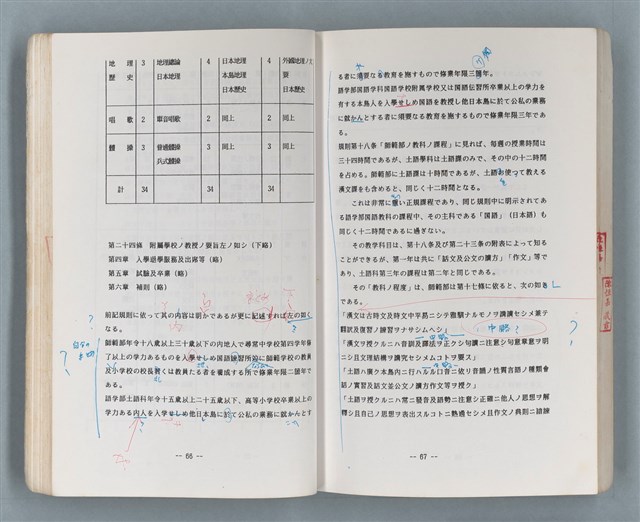 地理 3 地理總論 4 日本地理 4 外國地理ノ大
歷史 日本地理 本島地理 要
日本歷史 日本歷史
唱歌 2 單音唱歌 2 同上 2 同上
體操 3 普通體操 3 同上 3 同上
兵式體操
計 34 34 34
第二十四條 附屬學校ノ教授ノ要旨左ノ如シ(下略)
第四章 入學退學服務及出席等(略)
第五章 試驗及卒業(略)
第六章 補則(略)
前記規則に依って其の内容は明かであるが更に記述すれば左の如く
なる。
師範部年令十八歲以上三十歲以下の内地人で尋常中學校第四學年修
了以上の學力あるものを入學せしめ国語練習所
及小学校の校長若くは教員たる者を養成する所で修業年限二年であ
る。
語学部土語科年令十五歲以上二十五歲以下、高等小学校卒業以上の
学力ある内人を入学せしめ他日本島に於て公私の業務に就かんとす
-- 66 --
る者に須要なる教育を施すもので修業年限三箇年。
語学部国語学科国語学校附属学校又は国語伝習所卒業以上の学力を
有する本島人を入學せしめ国語を教授し他日本島に於て公私の業務
に就かんとする者に須要なる教育を施すもので修業年限三年であ
る。
規則第十八条「師範部ノ教科ノ課程」に見れば、毎週の授業時間は
三十四時間であるが、土語學科は土語課のみで、その中の十二時間
を占める。師範部に土語課は十時間であるが、土語お使って教える
漢文課をも含めると、同じく十二時間となる。
これは非常に重い正規課程であり、同じ規則中に明示されてあ
る語学部国語教科の課程中、その主科である「国語」(日本語)も
同じく十二時間であるに過ぎない。
その教学科目は、第十八条及び第二十三条の附表によって知る
ことができるが、第一年は共に「話文及公文の讀方」「作文」等で
あり、土語科第三年の課程は第二年と同じである。
その「教科ノ程度」は、師範部は第十七條に依ると、次の如き
である。
「漢文ハ古時文及時文中平易ニシテ雅馴ナルモノヲ講讀セシメ兼テ
翻訳及復習ノ練習ヲナサシムヘシ」 中略?
「漢文授クルニハ音訓及譯法ヲ正クシ句讀ニ注意シ句意章意ヲ明
ニシ且文理結構ヲ講究セシメムコトヲ要ス」
「土語ハ廣ク本島内ニ行ハルル口音ニ依リ音韻ノ性質言語ノ種類會
話ノ實習及話文並公文ノ讀方作文等ヲ授ク」
「土語ヲ授クルニハ常ニ發音及語勢ニ注意シ正確ニ他人ノ思想ヲ解
釋シ且自己ノ思想ヲ表出スルコトニ熟過セシメ且作文ノ典則ニ諳諫
-- 67 --